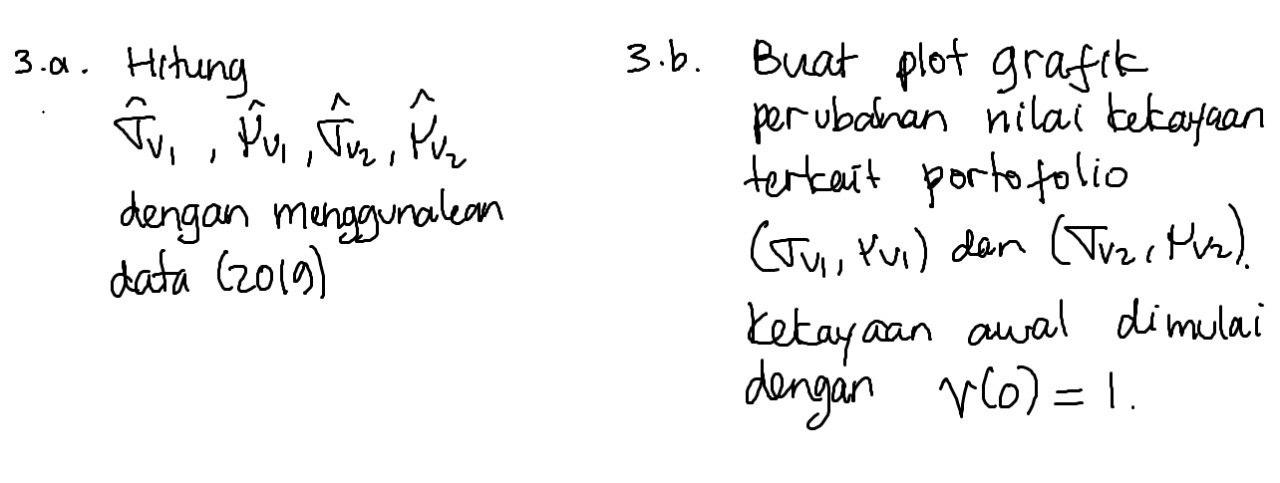 3.a. Hitung
σ̂v₁, μ̂v₁, σ̂v₂, μ̂v₂
dengan menggunakan
data (2019)
3.b. Buat plot grafik
perubahan nilai kekayaan
terkait portofolio
(σv₁, μv₁) dan (σv₂, μv₂).
kekayaan awal dimulai
dengan V(0) = 1.